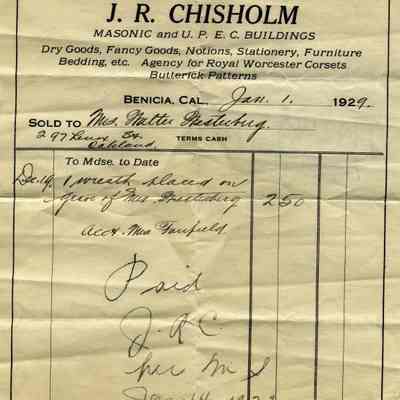 J. R. CHISHOLM
MASONIC and U. P. E. C. BUILDINGS
Dry Goods, Fancy Goods, Notions, Stationery, Furniture
Bedding, etc. Agency for Royal Worcester Corsets
Butterick Patterns
BENICIA, CAL. Jan. 1. 1929.
SOLD TO Mrs. Walter Westerburg.
297 Lenox St. TERMS CASH
Oakland.
To Mdse. to Date
Dec. 19, 1 wreath placed on
grave of Mrs Westerburg 2 50
acct. Mrs Fairfield
Paid
J. R C.
per M S
Jan 14 1929